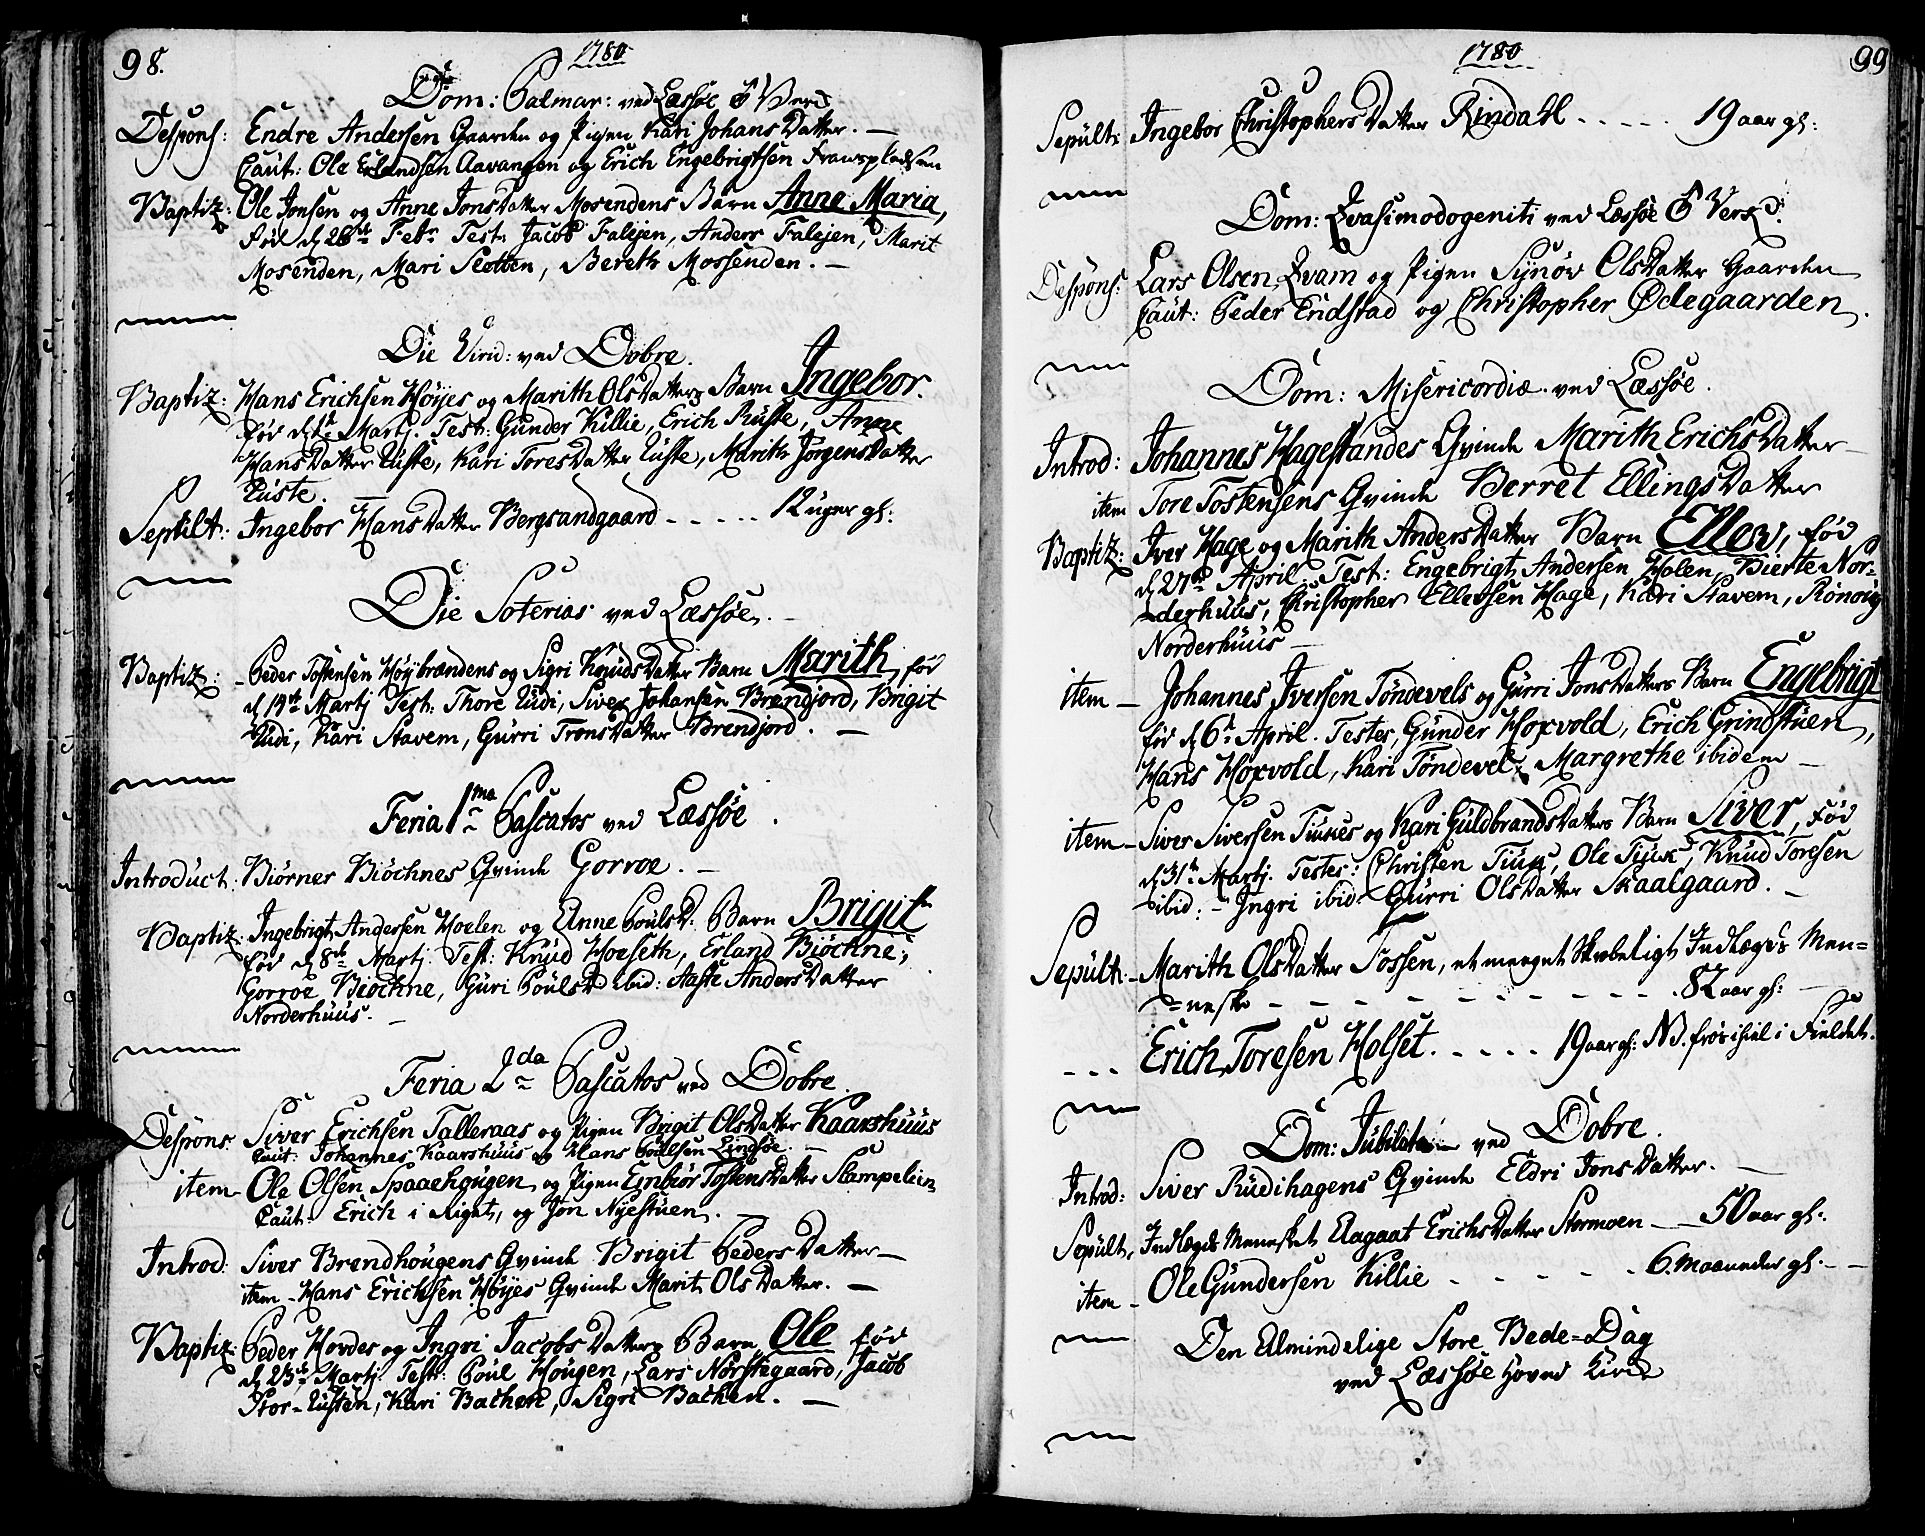 98.
1780
Dom: Palmar: ved Læssøe
Despons: Endre Andersen Gaarden og Pigen Kari JohansDatter. —
Caut: Ole Erlandsen Aavangen og Erich Engebrigtsen
Baptiz: Ole Jonsen og Anne JonsDatter Mosendens Barn Anne Maria,
Fød d 26de Febr Test: Jacob Falejen, Anders Falejen, Marit
Mosenden, Mari Sletten, Bereth Mossenden. —
Die Virid: ved Dobre.
Baptiz: Hans Erichsen Høyes og Marith OlsDatters Barn Ingebor.
Fød d Martj. Test: Gunder Killie, Erich Ruste, Anne
HansDatter Ruste, Kari ToresDatter Ruste, Marith JørgensDatter
Ruste.
Sepult: Ingebor HansDatter Bergsandgaard - - - - - 12 uger gl:
Die Soterias ved Læssøe. -
Baptiz: - Peder Tostensen Høybrændens og Sigri KnudsDatter Barn Marith, fød
d 19de Martj Test: Thore Rudi, Siver Johansen Brendjord, Brigit
Rudi, Kari Stavem, Gurri TronsDatter Brendjord. —
Feria 1ma Pascatos ved Læssøe.
Introduct: Biørner Biöchnes Qvinde Gorroe. —
Baptiz: Ingebrigt Andersen Hoelen og Anne PoulsD: Barn Brigit
fød d 8de Martj. Test: Knud Hoeseth, Erland Biöchne,
Gorroe Biöchne, Guri PoulsD ibid: Aaste AndersDatter
Norderhuus. —
Feria 2da Pascatos ved Dobre.
Despons: Siver Erichsen Talleraas og Pigen Brigit OlsDatter Kaarshuus
Caut: Johannes Kaarshuus og Hans Poulsen Lindsøe.
item - Ole Olsen Spaaehougen og Pigen Embiør TostensDatter
Caut: Erich i Riget, og Jon Nyestuen. —
Introd: Siver Brendhougens Qvinde Brigit PedersDatter —
item - Hans Erichsen Høyes Qvinde Marit OlsDatter. —
Baptiz: Peder Hovdes og Ingri JacobsDatters Barn Ole fød
d 23de Martj. Test: Poul Hougen, Lars Norstegaard, Jacob
Stor-Rusten, Kari Bachen, Sigri Bachen. —
1780
99
Sepult: Ingebor ChristophersDatter Rindahl - - - - - 19 aar gl:
Dom: Qvasimodogeniti ved Læssøe
Despons: Lars Olsen Qvam og Pigen Synøv OlsDatter Gaarden
Caut: Peder Endstad og Christopher Ødegaarden.
Dom: Misericordiæ ved Læssøe.
Introd: Johannes Hagestandes Qvinde Marith ErichsDatter —
item Tore Tostensens Qvinde Berret EllingsDatter
Baptiz: Iver Hage og Marith AndersDatter Barn Ellev, fød
d 27de April. Test: Engebrigt Andersen Holen, Bierte Nor=
derhuus, Christopher Ellevsen Hage, Kari Stavem, Rønnoug
Norderhuus —
item - Johannes Iversen Tøndevels og Gurri JonsDatters Barn Engebrigt
fød d 6te April. Testes, Gunder Hoxvold, Erich Grindstuen,
Hans Hoxvold, Kari Tøndevel, Margrethe ibidem —
item - Siver Siversen Tiuxes og Kari GuldbrandsDatters Barn Siver, fød
d 31te Martj. Testes: Christen Tiux, Ole Tiux, Knud Toresen
ibid: - Ingri ibid Gurri OlsDatter Skaalgaard. —
Sepult: - Marith OlsDatter Tossen, et meeget Skrøbeligt Indlægds Men=
=neske - - - - - - - - - - - 82 aar gl: —
- - - Erich Toresen Holset. - - - - - 19 aar gl: NB. frøs ihiel i Fieldet.
Dom: Jubilate ved Dobre.
Introd: Siver Rudihagens Qvinde Eldri JonsDatter. —
Sepult: Indlægds Mennesket Aagaat ErichsDatter Stormoen — 50 aar gl:
item - Ole Gundersen Killie - - - - - - 6. Maaneder gl: —
Den Almindelige Store Bede=Dag
ved Læssøe Hoved Kirke